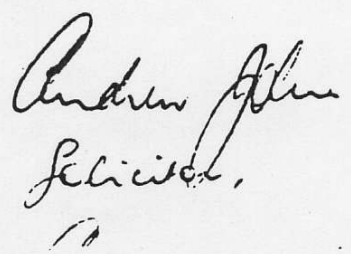 Andrew John
Solicitor,